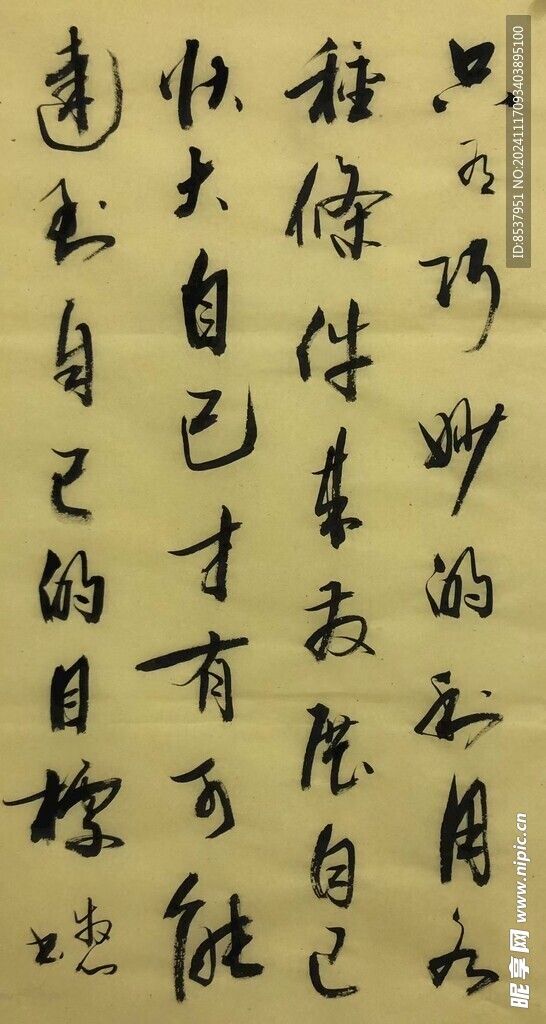 只有巧妙的利用各
種條件来发展自己
壮大自己才有可能
達到自己的目標
书
ID:8537951 NO:20241117093403895100
昵享网 www.nipic.cn